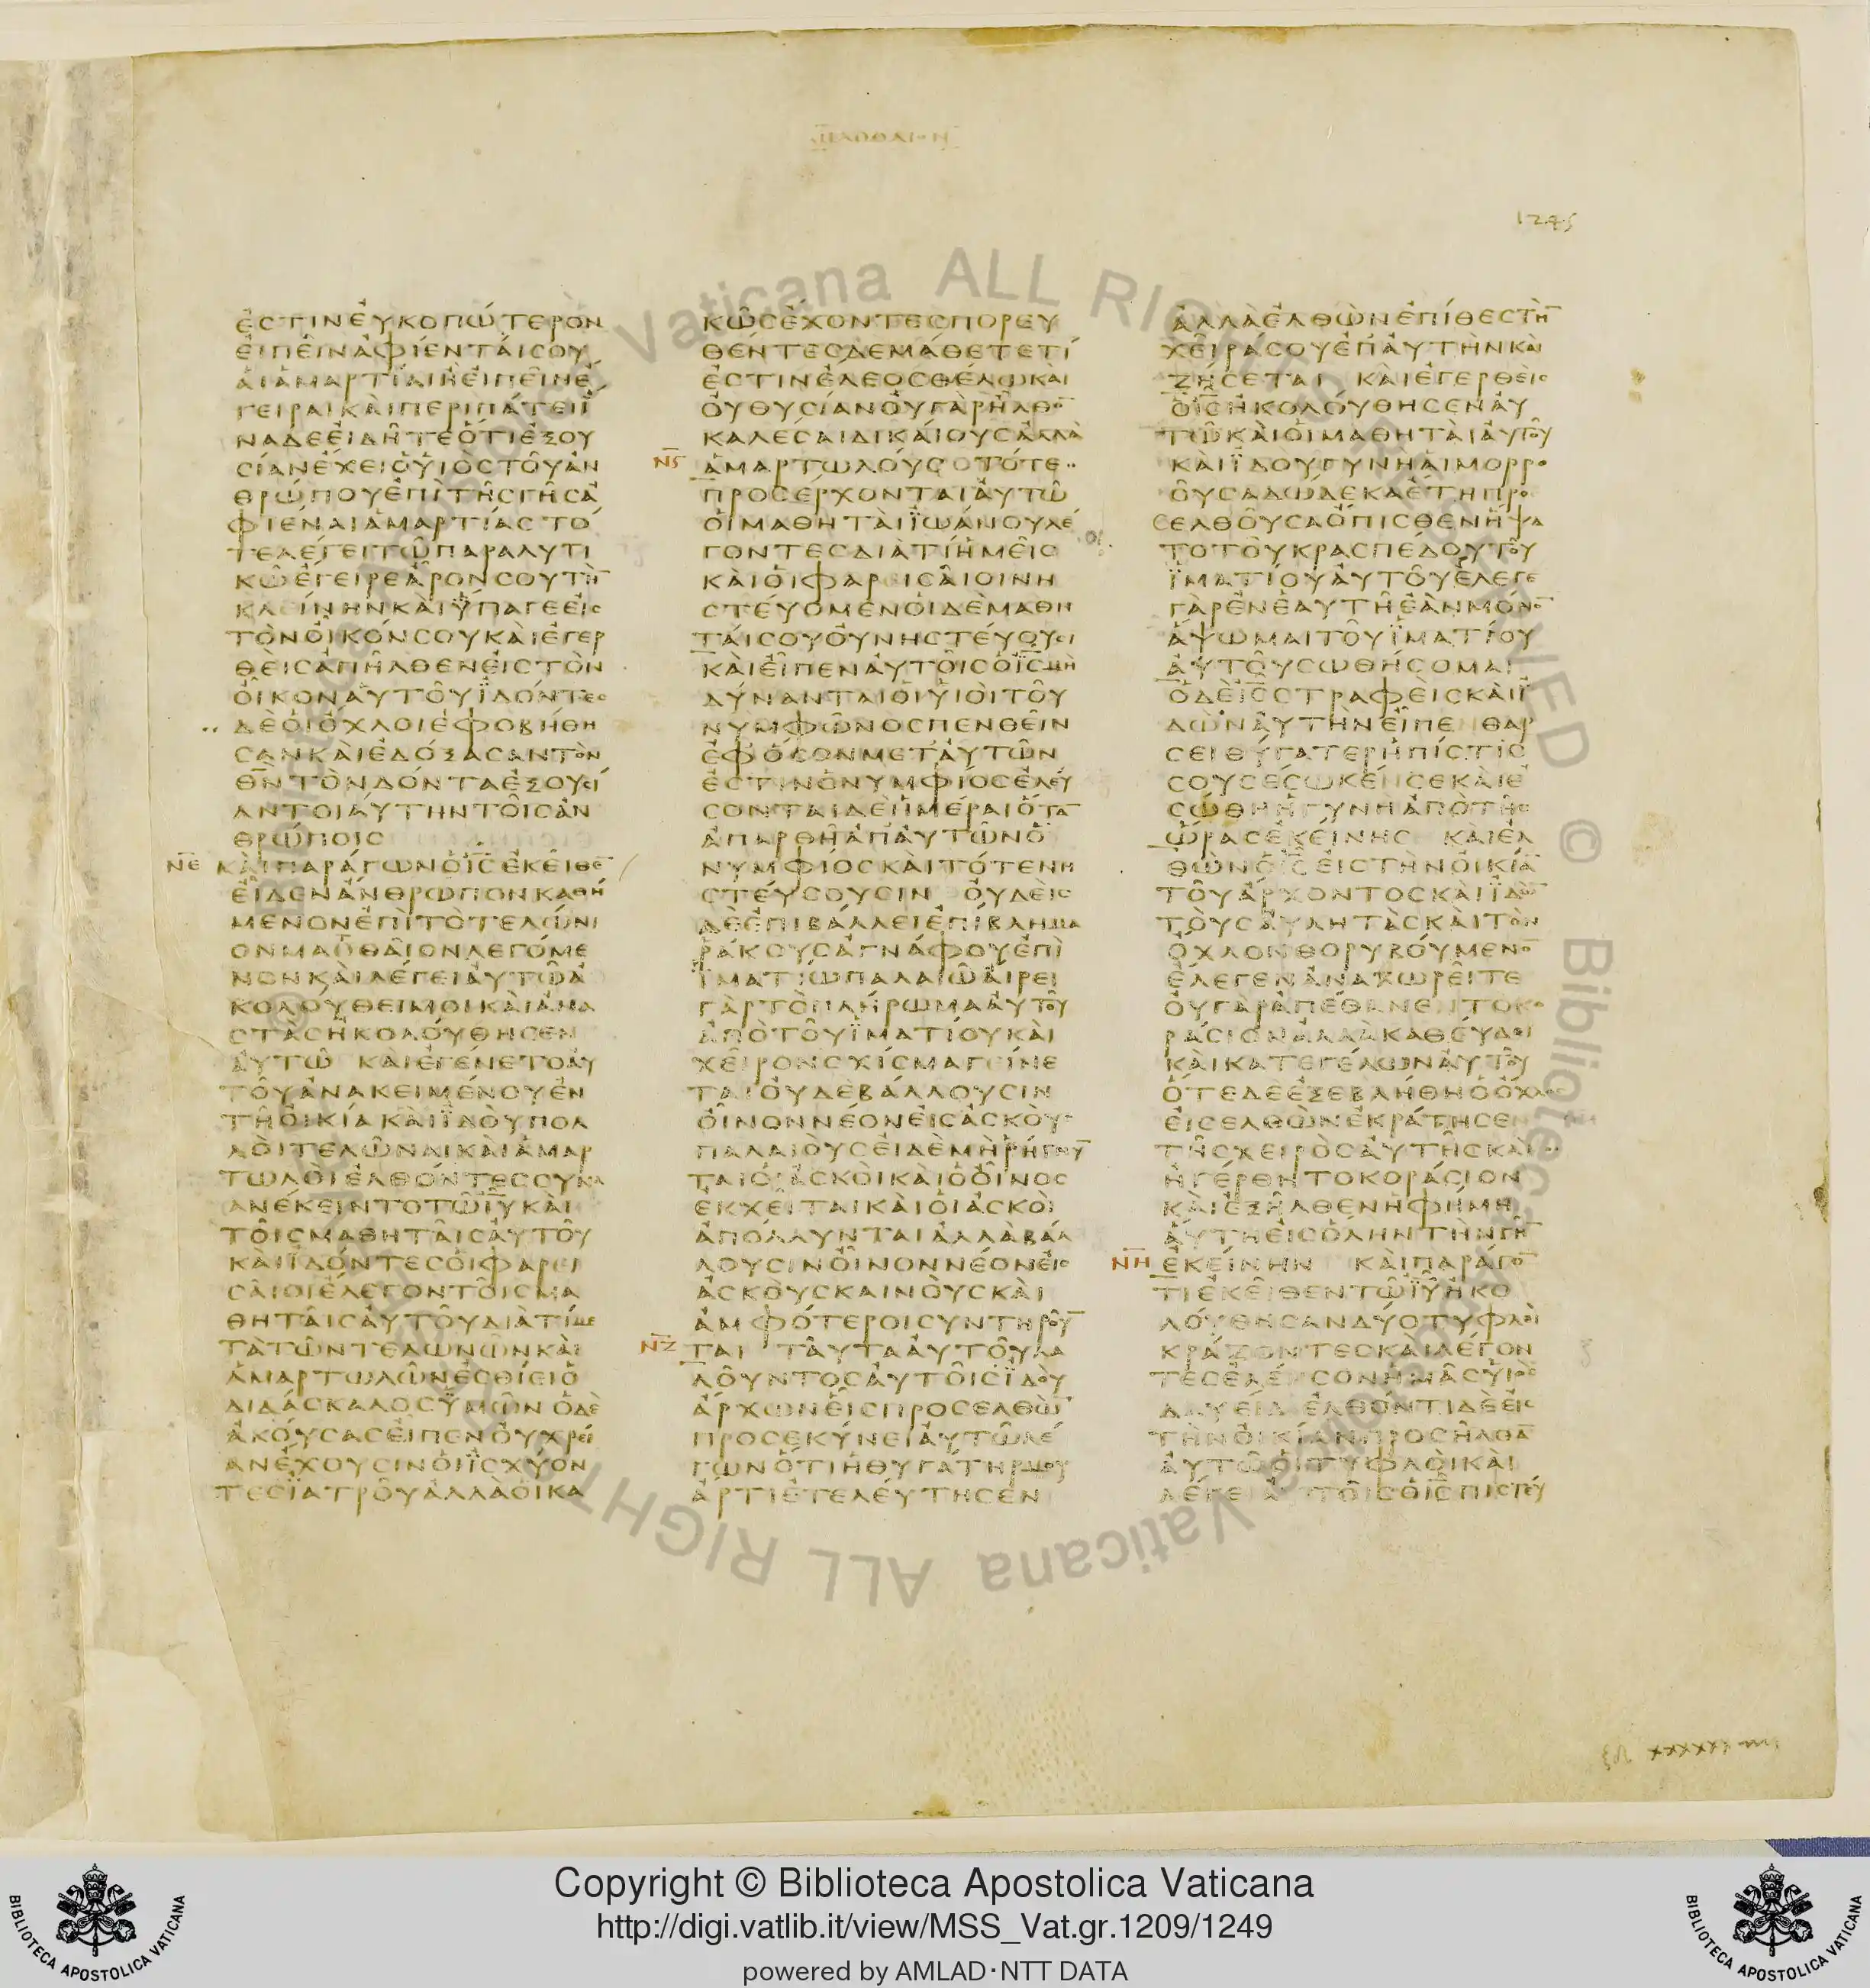 ΜΑΘΘΑΙΟΝ
1245
ἐςτινἐυκοπώτερὸν
ἐιπεῖνἀφίενταίςου
ἁιἁμαρτίαιἢἐιπεῖνἐ
γειραικὰιπεριπάτειϊ
ναδεἐιδῆτεὅτιἐξου
ςίανἔχειὁϋἱὸςτοῦἀν
θρώπουἐπὶτῆςγῆςἀ
φιέναιἁμαρτίαςτό
τελέγειτῶπαραλυτι
κῶἔγειρεἆρόνςουτὴ̅
κλίνηνκαὶϋπαγεεἰς
τὸνοἶκόνςουκαὶἐγερ
θεὶςἀπῆλθενεἰςτὸν
οἶκοναὐτοῦϊδόντες
δὲὁιὄχλοιἐφοβήθη
ςανκαὶἐδόξαςαντὸν
θ̅ν̅τὸνδόνταἐξουςί
αντοιαύτηντοῖςἀν
θρώποις
Ν̅Ε̅ καὶπαράγωνὁι̅ς̅ἐκεῖθε̅
εἶδενἄνθρωπονκαθή
μενονἐπὶτὸτελώνι
ονμαθθαῖονλεγόμε
νονκαὶλέγειαὐτῶἀ
κολούθειμοικαὶἀνα
ςτὰςἠκολούθηςεν
αὐτῶ καὶἐγένετοαὐ
τοῦἀνακειμένουἐν
τῆοἰκίακαὶϊδοὺπολ
λοὶτελῶναικαὶἁμαρ
τωλοὶἐλθόντεςςυνα
ανέκειντοτῶι̅υ̅καὶ
τοῖςμαθηταῖςαὐτοῦ
καὶϊδόντεςὁιφαρει
ςαῖοιἔλεγοντοῖςμα
θηταῖςαὐτοῦδιατίμε
τὰτῶντελωνῶνκαὶ
ἁμαρτωλῶνἐςθίειὁ
διδάςκαλοςϋμῶν ὁδὲ
ἀκούςαςεἶπενοὐχρεί
ανἔχουςινὁιϊςχύον
τεςϊατροῦἀλλὰὁικα
κῶςἔχοντεςπορευ
θέντεςδεμάθετετί
ἐςτινἔλεοςθέλωκαι
οὐθυςίανοὐγὰρἦλθο̅
καλέςαιδικαίουςἀλλὰ
Ν̅Ϛ̅ ἁμαρτωλούς τότε
προςέρχονταιαὐτῶ
ὁιμαθηταὶϊωάνουλέ
γοντεςδιατίἡμεῖς
καὶὁιφαρειςαῖοινη
ςτεύομενὁιδὲμαθη
ταίςουοὐνηςτεύουςι
καὶεἶπεναὐτοῖςὁι̅ς̅μὴ
δύνανταιὁιϋἱοὶτοῦ
νυμφῶνοςπενθεῖν
ἐφὅςονμεταὐτῶν
ἐςτινὁνυμφίοςἐλεύ
ςονταιδὲἡμέραιὅτα̅
ἀπαρθῆἀπαὐτῶνὁ
νυμφίοςκαὶτότενη
ςτεύςουςιν οὐδεὶς
δὲἐπιβάλλειἐπίβλημα
ῥάκουςἀγνάφουἐπὶ
ϊματίωπαλαιῶαἴρει
γὰρτὸπλήρωμααὐτοῦ
ἀπὸτοῦϊματίουκαὶ
χεῖρονςχίςμαγείνε
ταιοὐδὲβάλλουςιν
οἶνοννέονεἰςἀςκοὺς
παλαιοὺςεἰδὲμὴῥήγνυ̅
ταιὁιἀςκοὶκαὶὁοἶνος
ἐκχεῖταικαὶὁιἀςκοὶ
ἀπόλλυνταιἀλλὰβάλ
λουςινοἶνοννέονεἰς
ἀςκοὺςκαινοὺςκαὶ
ἀμφότεροιςυντηροῦ̅
Ν̅Ζ̅ ται ταῦτααὐτοῦλα
λοῦντοςαὐτοῖςϊδοὺ
ἄρχωνεἷςπροςελθὼ̅
προςεκύνειαὐτῶλέ
γωνὅτιἡθυγάτηρμου
ἄρτιἐτελεύτηςεν
ἀλλὰἐλθὼνἐπίθεςτὴ̅
χεῖράςουἐπαὐτὴνκαὶ
ζήςεται καὶἐγερθεὶς
ὁι̅ς̅ἠκολούθηςεναὐ
τῶκαὶὁιμαθηταὶαὐτοῦ
καὶϊδοὺγυνὴαἱμορρο
οῦςαδώδεκαἔτηπρο
ςελθοῦςαὄπιςθενἥψα
τοτοῦκραςπέδουτοῦ
ϊματίουαὐτοῦἔλεγε
γὰρἐνἑαυτῆἐὰνμόνο̅
ἅψωμαιτοῦϊματίου
αὐτοῦςωθήςομαι
ὁδὲι̅ς̅ςτραφεὶςκαὶϊ
δὼναὐτὴνεἶπε θάρ
ςειθύγατερἡπίςτις
ςουςέςωκένςεκαὶἐ
ςώθηἡγυνὴἀπὸτῆς
ὥραςἐκείνης καὶἐλ
θὼνὁι̅ς̅εἰςτὴνοἰκία̅
τοῦἄρχοντοςκαὶϊδὼ̅
τοὺςαὐλητὰςκαὶτὸν
ὄχλονθορυβούμενο̅
ἔλεγενἀναχωρεῖτε
οὐγὰρἀπέθανεντοκο
ράςιονἀλλὰκαθεύδει
καὶκατεγέλωναὐτοῦ
ὅτεδεἐξεβλήθηὁὄχλος
εἰςελθὼνἐκράτηςεν
τῆςχειρὸςαὐτῆςκαὶ
ἠγέρθητοκοράςιον
καὶἐξῆλθενἡφήμη
αὕτηεἰςὅληντὴνγῆ̅
Ν̅Η̅ ἐκείνην καὶπαράγο̅
τιἐκεῖθεντῶι̅υ̅ἠκο
λούθηςανδύοτυφλοὶ
κράζοντεςκαὶλέγον
τεςἐλέηςονἡμᾶςυἱὸς
δαυείδ ἐλθόντιδὲεἰς
τὴνοἰκίανπροςῆλθα̅
αὐτῶὁιτυφλοὶκαὶ
λέγειαὐτοῖςὁι̅ς̅πιςτεύ
Copyright © Biblioteca Apostolica Vaticana
http://digi.vatlib.it/view/MSS_Vat.gr.1209/1249
powered by AMLAD·NTT DATA
BIBLIOTECA APOSTOLICA VATICANA
BIBLIOTECA APOSTOLICA VATICANA